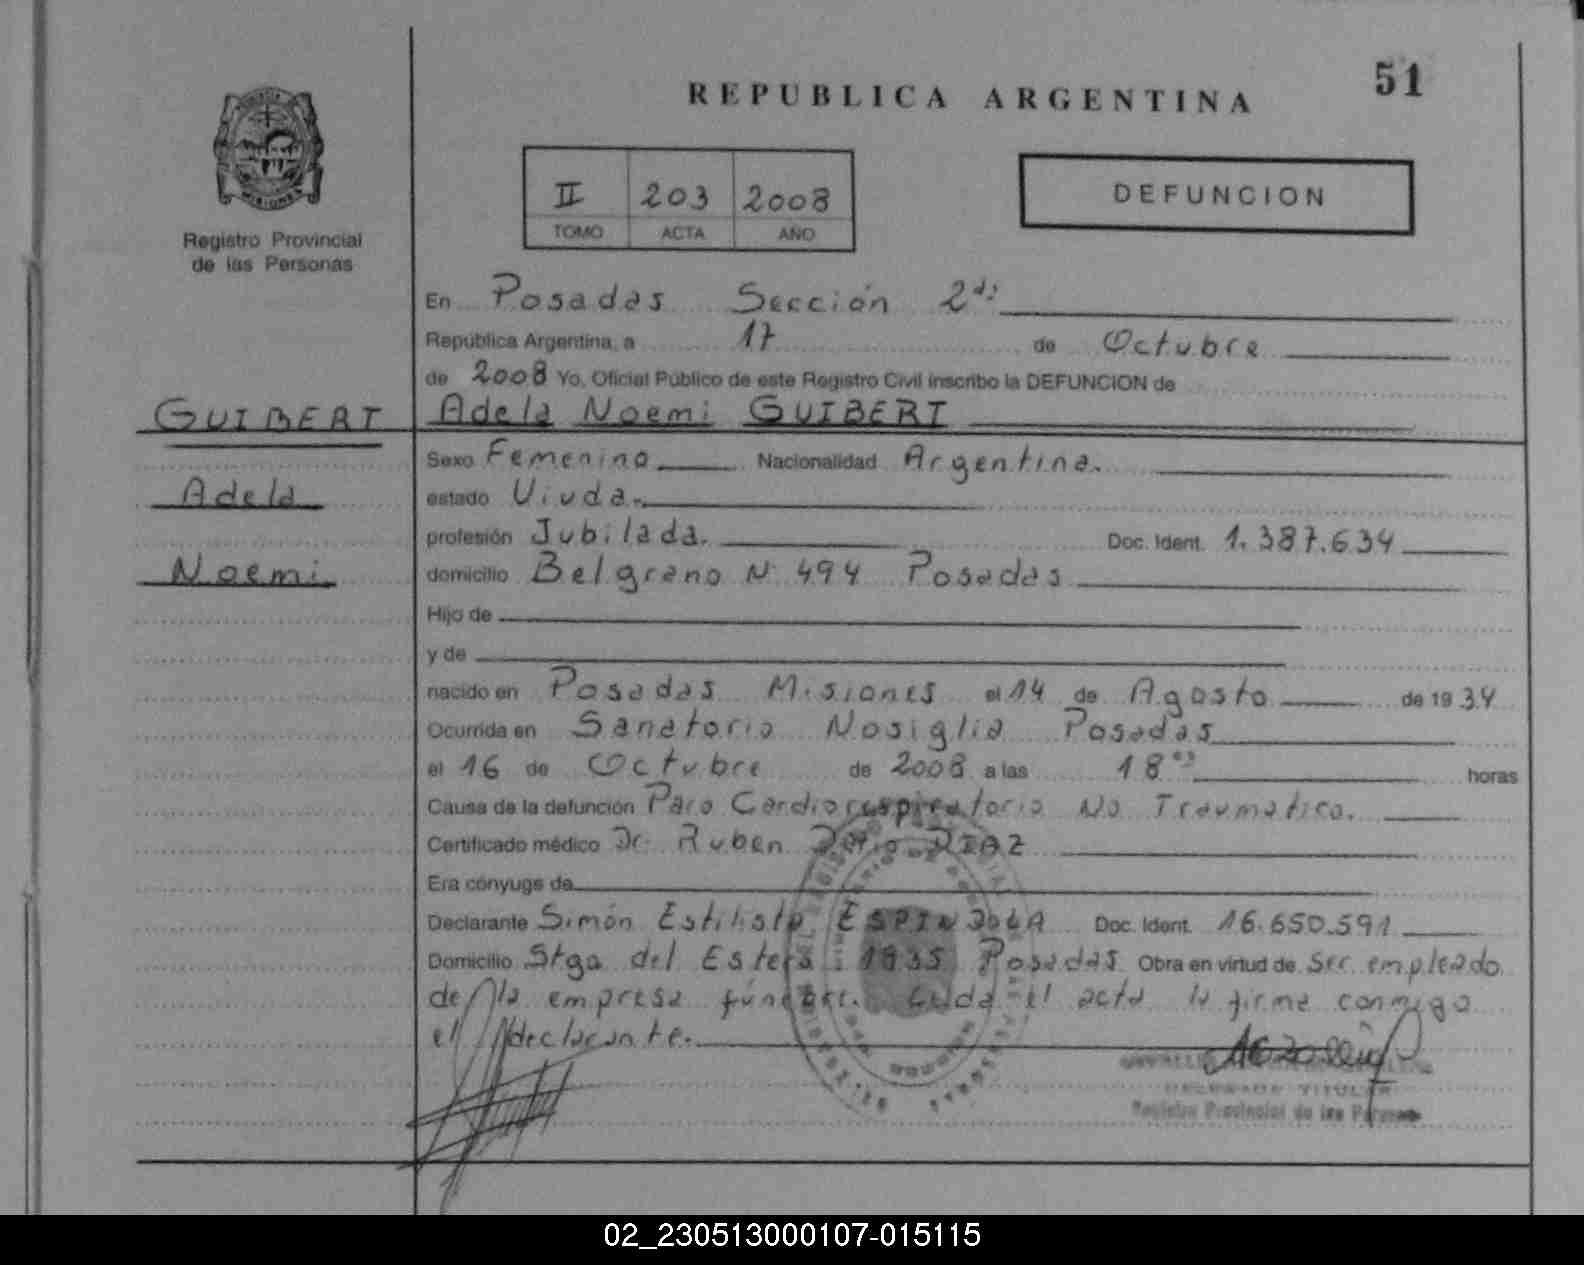 51
REPUBLICA ARGENTINA
MISIONES
Registro Provincial
de las Personas
II 203 2008
TOMO ACTA AÑO
DEFUNCION
En Posadas Sección 2da:
República Argentina, a 17 de Octubre
de 2008 Yo, Oficial Público de este Registro Civil inscribo la DEFUNCION de
GUIBERT Adela Noemi GUIBERT
Sexo Femenino Nacionalidad Argentina.
Adela estado Viuda.
profesión Jubilada. Doc. Ident. 1.387.634
Noemi domicilio Belgrano N: 494 Posadas
Hijo de
y de
nacido en Posadas Misiones el 14 de Agosto de 1934
Ocurrida en Sanatorio Nosiglia Posadas
el 16 de Octubre de 2008 a las 18 horas
Causa de la defunción Paro Cardiorespiratorio No Traumatico.
Certificado médico Dr. Ruben Dario DIAZ
Era cónyuge de
Declarante Simón Estilisto ESPINDOLA Doc. Ident. 16.650.591
Domicilio Stga del Estero: 1835 Posadas Obra en virtud de Ser empleado
de la empresa fúnebre. Leida el acta la firma conmigo
el declarante.
DELEGADA TITULAR
Registro Provincial de las Personas
02_230513000107-015115